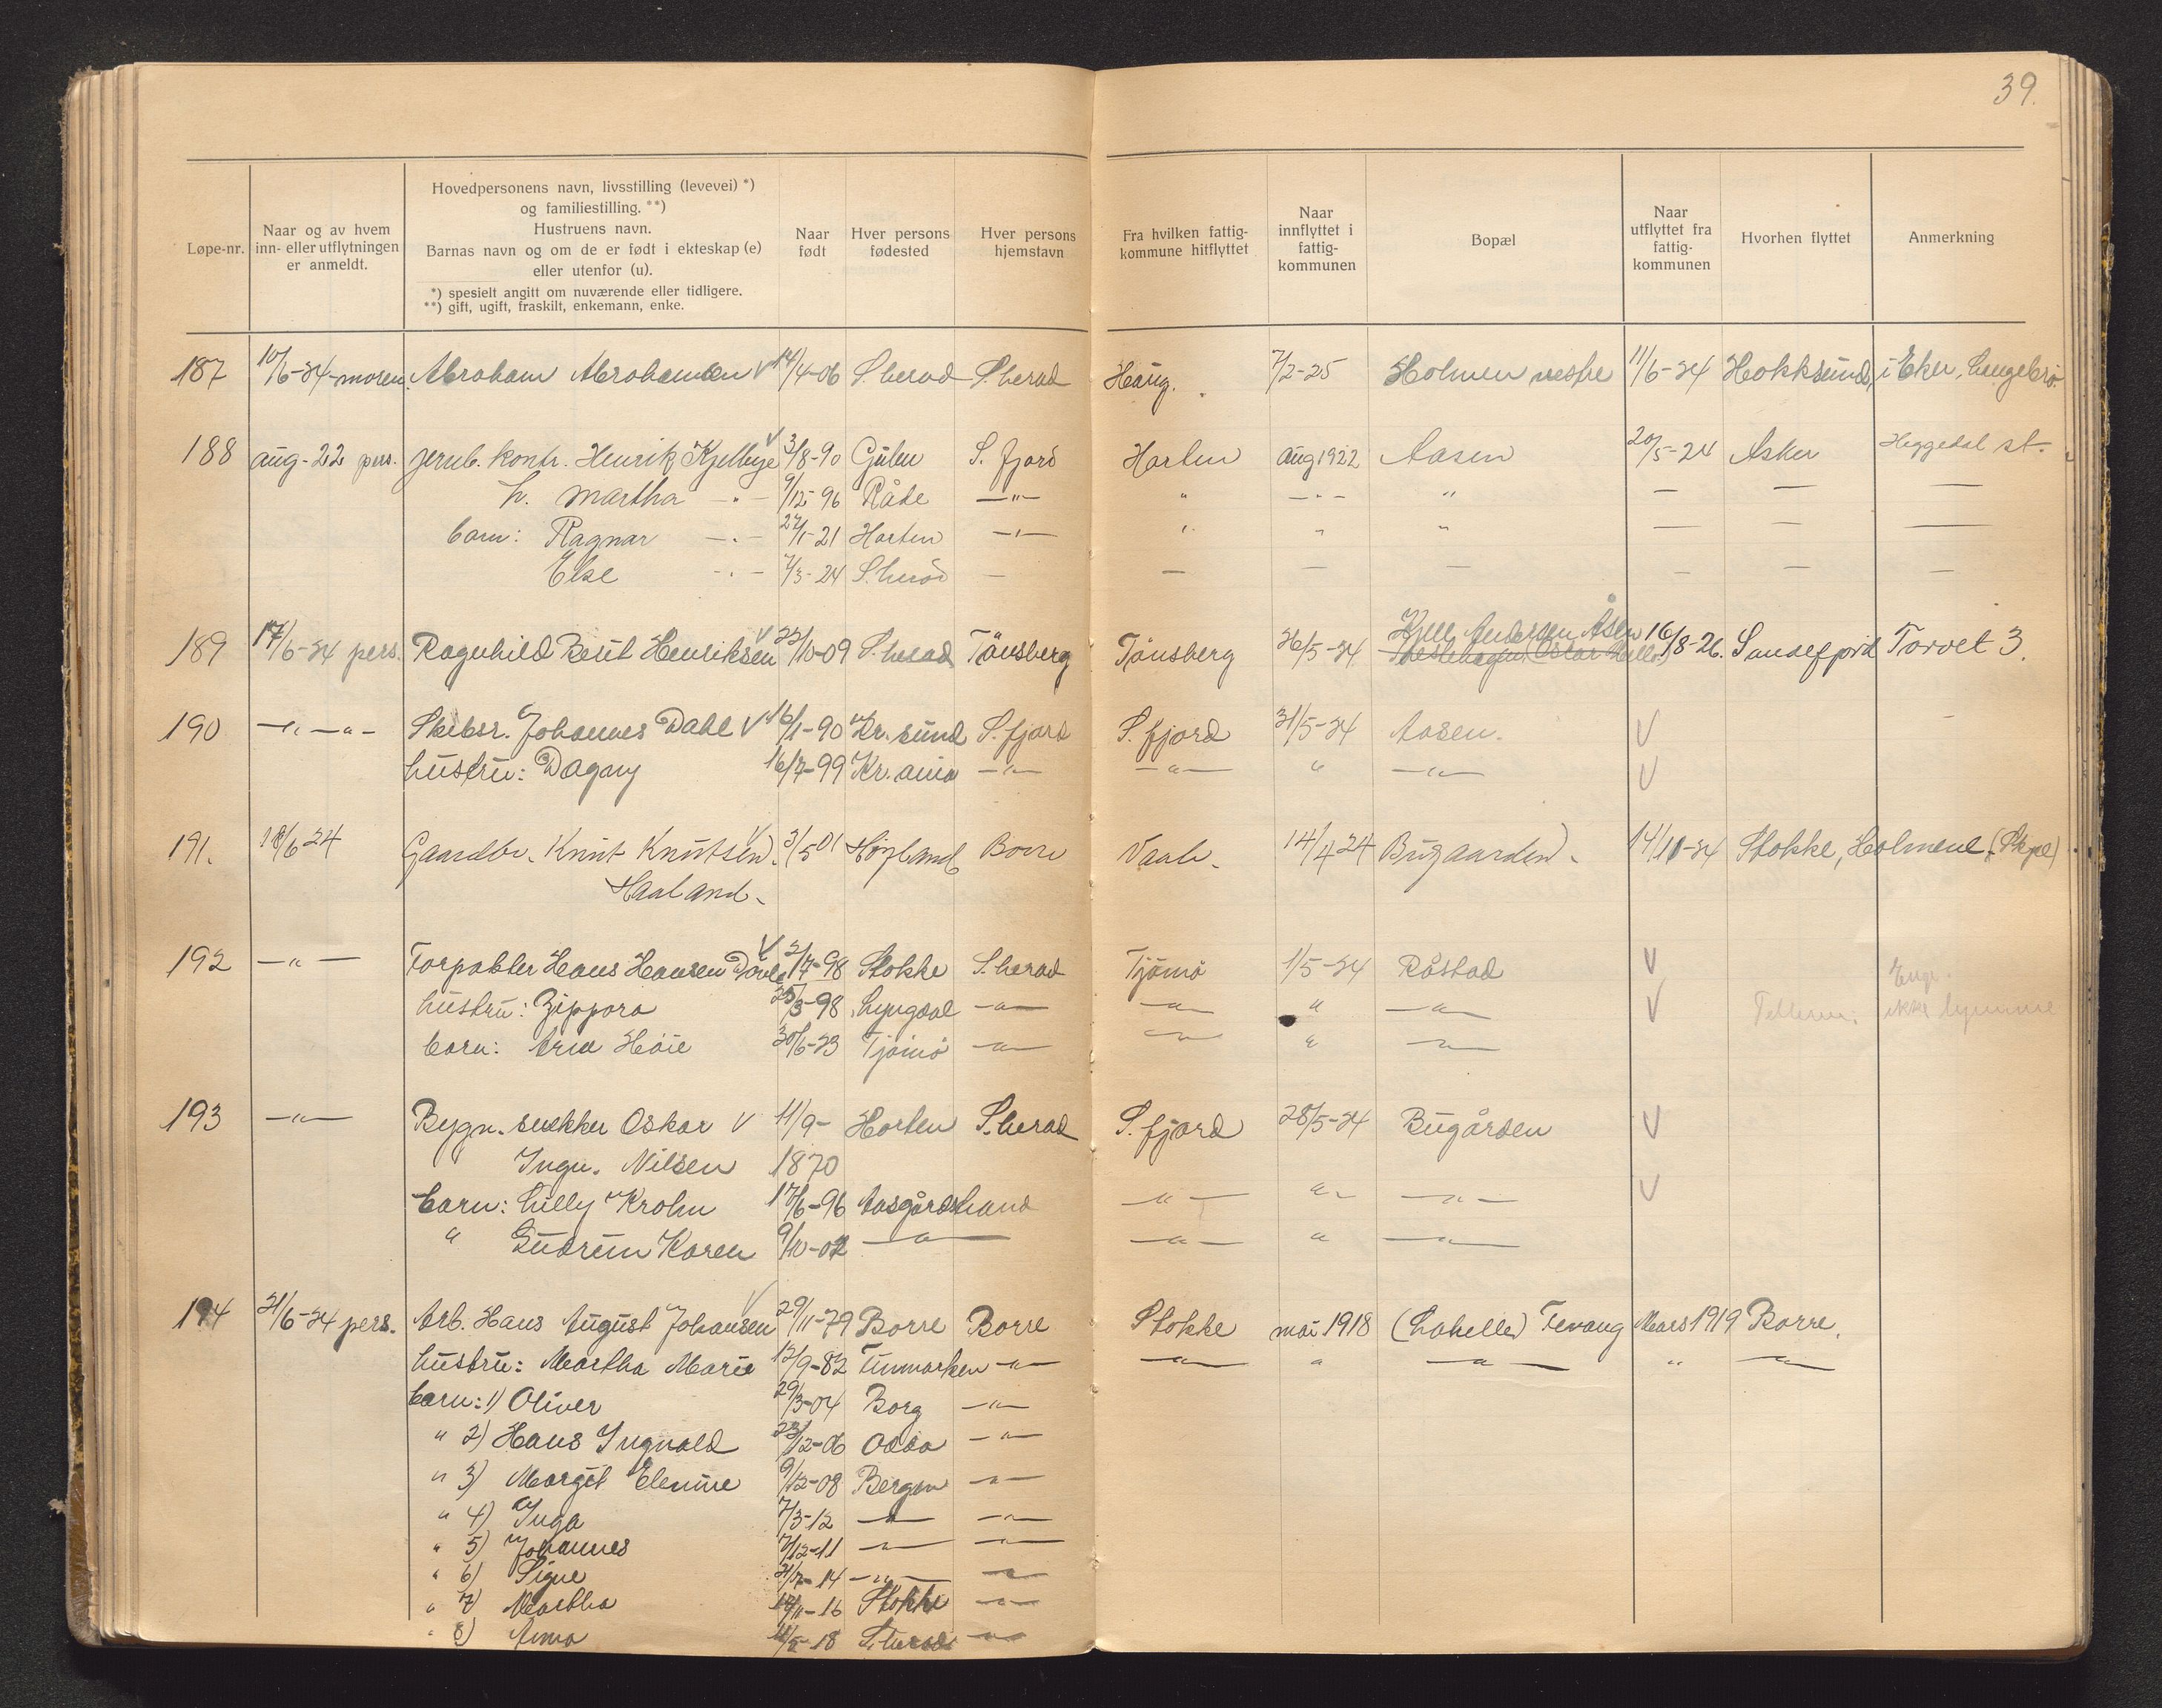 39.
Løpe-nr.
Naar og av hvem
inn- eller utflytningen
er anmeldt.
Hovedpersonens navn, livsstilling (levevei) *)
og familiestilling. **)
Hustruens navn.
Barnas navn og om de er født i ekteskap (e)
eller utenfor (u).
*) spesielt angitt om nuværende eller tidligere.
**) gift, ugift, fraskilt, enkemann, enke.
Naar
født
Hver persons
fødested
Hver persons
hjemstavn
Fra hvilken fattig-
kommune hitflyttet
Naar
innflyttet i
fattig-
kommunen
Bopæl
Naar
utflyttet fra
fattig-
kommunen
Hvorhen flyttet
Anmerkning
187 10/6-24-moren. Abraham Abrahamsen V 14/4-06 S.herad S.herad Haug. 7/2-25 Holmen vestre 11/6-24 Hokksund, i Eker,
188 aug-22 pers. jernb. kontr. Henrik Kjelbye V 3/8-90 Gulen S. fjord Horten aug 1922 Aasen 20/5-24 Asker Heggedal st.
h. Martha -"- 9/12-96 Råde -"- " -"- " — — —
barn: Ragnar -"- 27/1-21 Horten -"- " " " — — —
Else -"- 7/3-24 S.herad — — — — — — —
189 17/6-24 pers. Ragnhild Berit Henriksen V 22/10-09 S.herad Tönsberg Tönsberg 26/5-24 Kjell Andersen Åsen 16/8-26. Sandefjord Torvet 3.
190 -"- -"- Skibsr. Johannes Dahl V 16/1-90 Kr.sund S. fjord S. fjord 31/5-24 Aasen. V
hustru: Dagny 16/7-99 Kr.ania -"- -"- " -"- V
191. 18/6 24 Gaardbr. Knut Knutsen V 3/5 01 Høyland Borre Vaale. 14/4 24 Bugaarden. 14/11-24 Stokke, Holmene,
Haaland.
192 -"- Torpakter Hans Hansen V 2/7-98 Stokke S.herad Tjömö 1/5-24 Råstad V
hustru: Zippora 25/3-98 Lyngdal -"- -"- " -"- V ikke
barn: Höie 30/6-23 Tjömö -"- -"- " -"-
193 -"- Bygn. snekker Oskar V 11/9- Horten S.herad S. fjord 28/5-24 Bugården V
" Ingv. Nilsen 1870
barn: Lilly Krohn 17/6-96 Aasgårdstrand -"- " -"- V
" Gudrun Karen 9/10-02 -"- -"- " -"-
194 21/6-24 pers. Arb. Hans August Johansen V 29/11-79 Borre Borre Stokke mai 1918 (Labella) Tevang Mars 1919 Borre.
hustru: Martha Marie 12/9-82 Finmarken -"- -"- " -"- " -"-
barn: 1) Oliver 29/3-04 Borg -"-
" 2) Hans Ingvald 23/12-06 Odda -"-
" 3) Margit Elenine 9/12-08 Bergen -"-
" 4) Inga 7/3-12 -"- -"-
" 5) Johannes 7/12-11 -"- -"-
" 6) Signe -14 -"- -"-
" 7) Martha -16 Stokke -"-
" 8) Anna -18 S.herad -"-